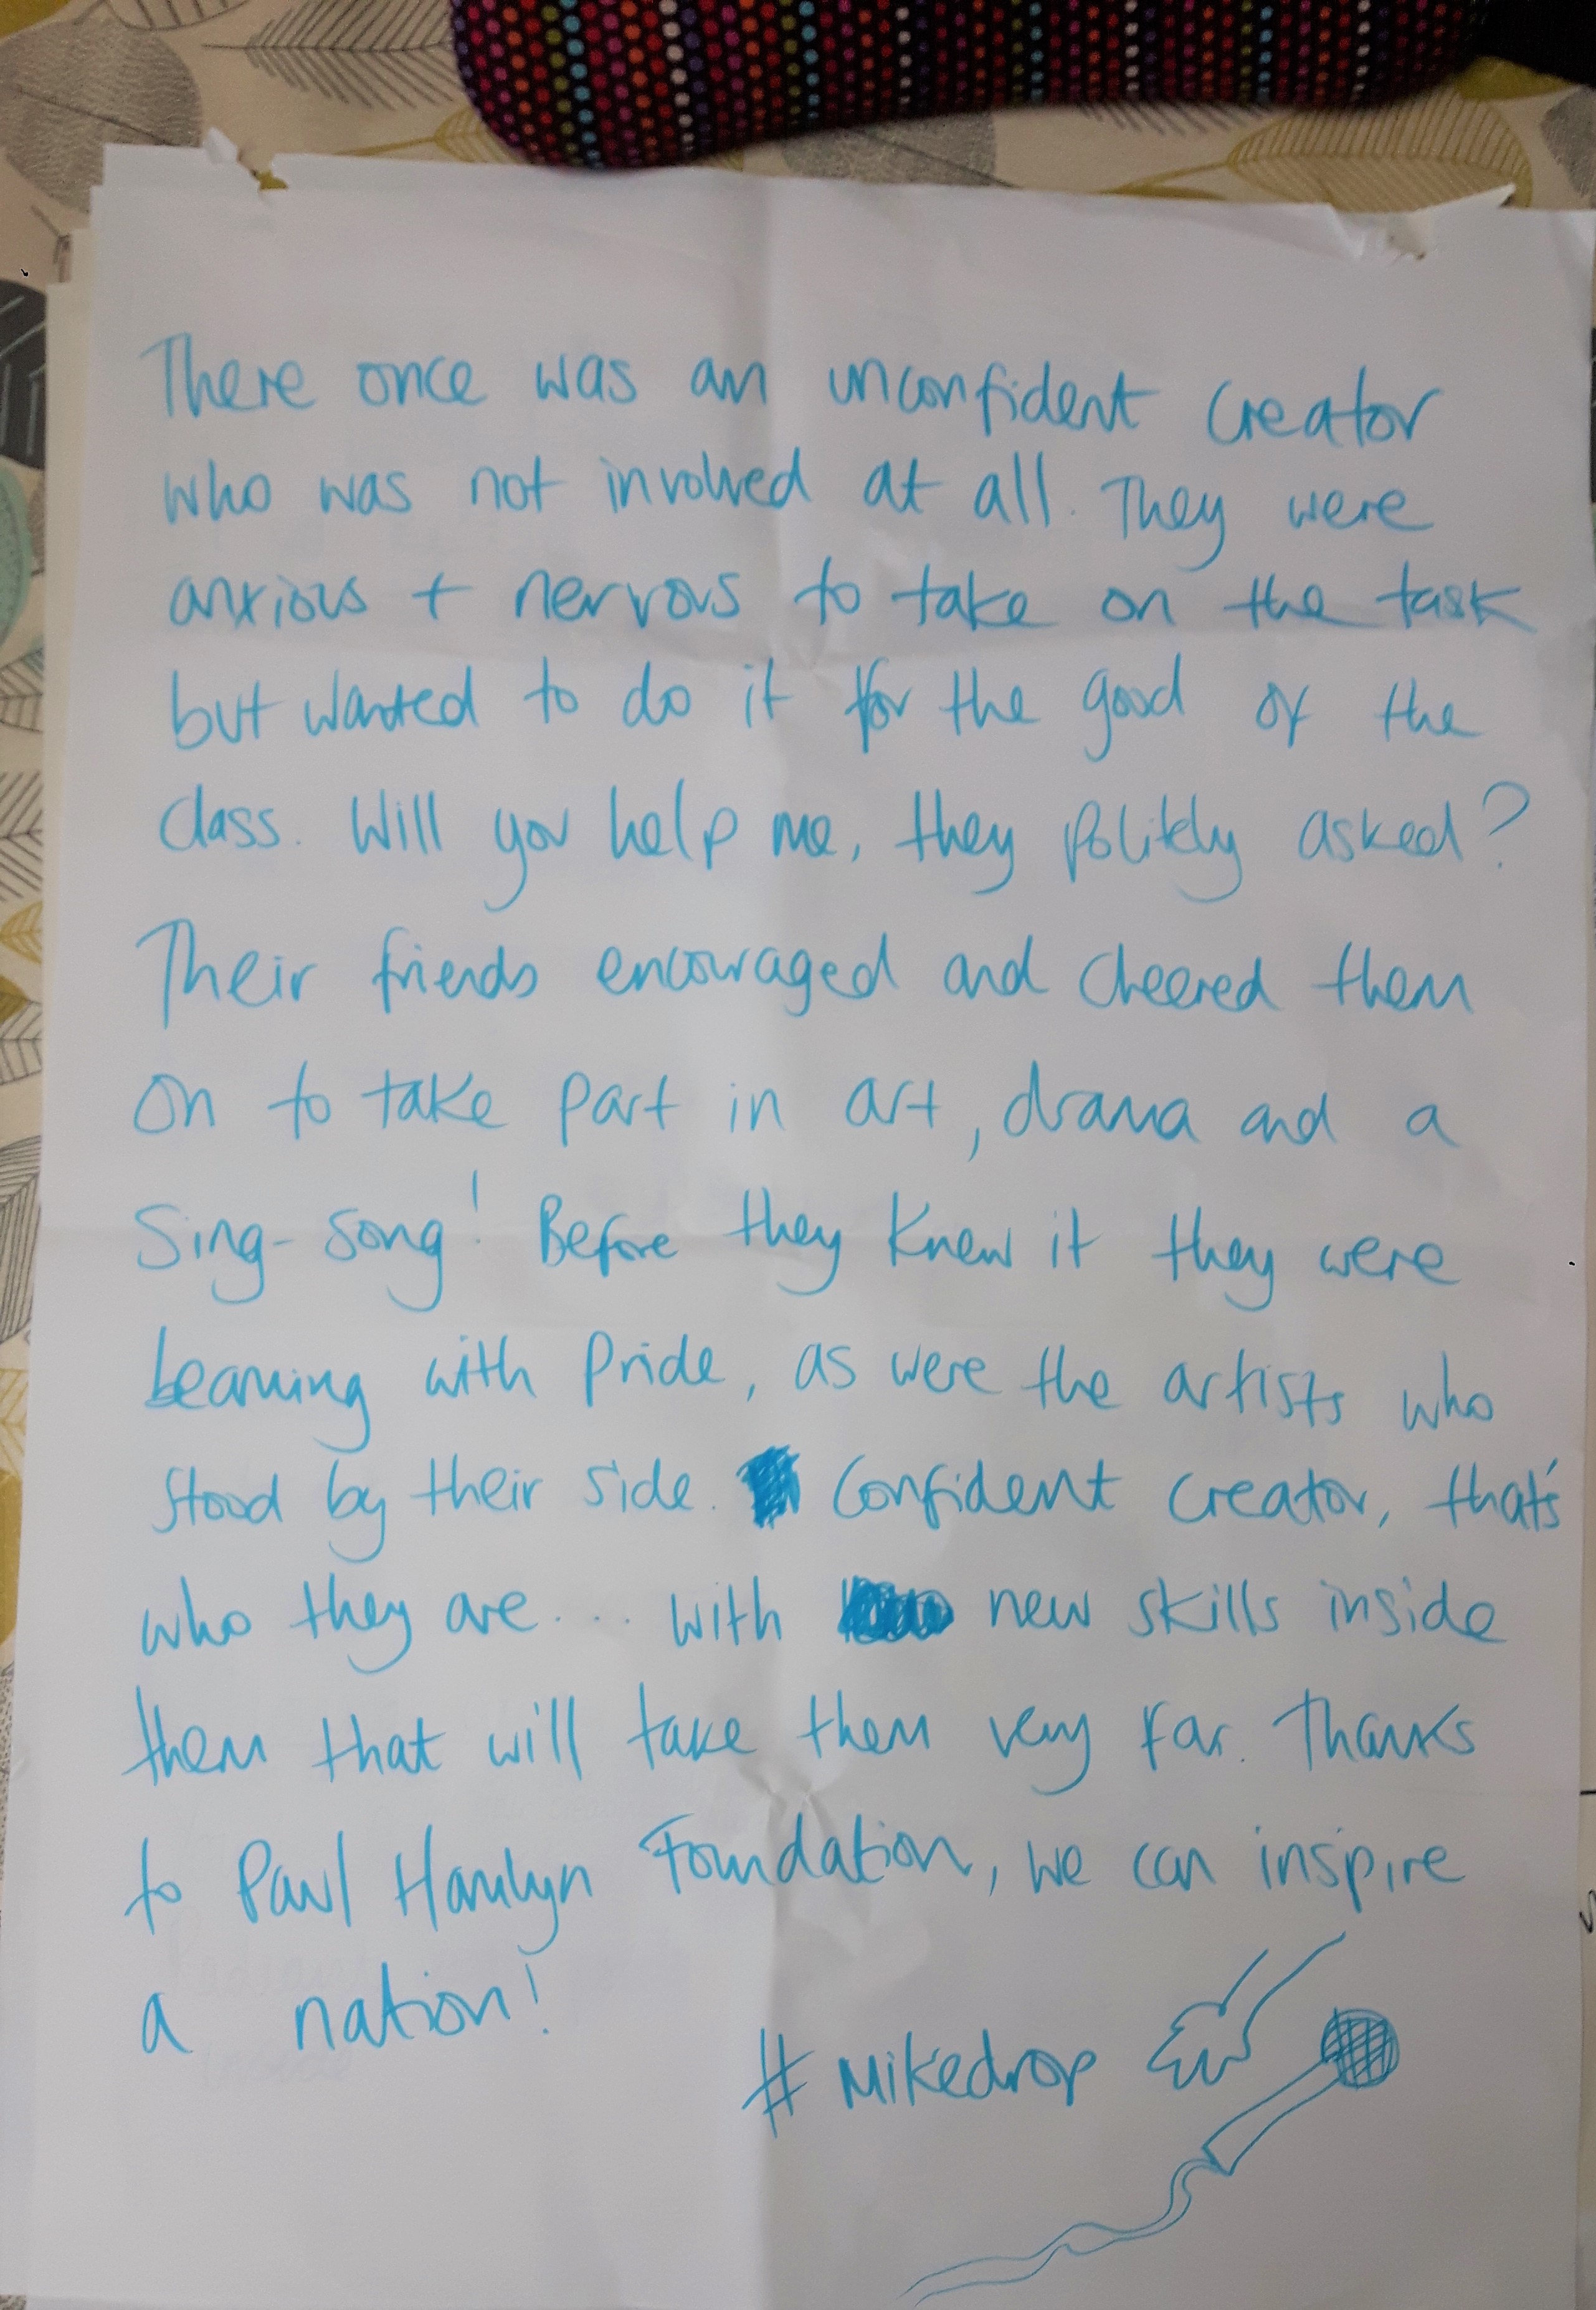 There once was an unconfident creator
who was not involved at all. They were
anxious + nervous to take on the task
but wanted to do it for the good of the
class. Will you help me, they politely asked?
Their friends encouraged and cheered them
on to take part in art, drama and a
Sing-song! Before they knew it they were
beaming with pride, as were the artists who
stood by their side. Confident creator, that's
who they are.... with new skills inside
them that will take them very far. Thanks
to Paul Hamlyn Foundation, we can inspire
a nation!
#Mikedrop